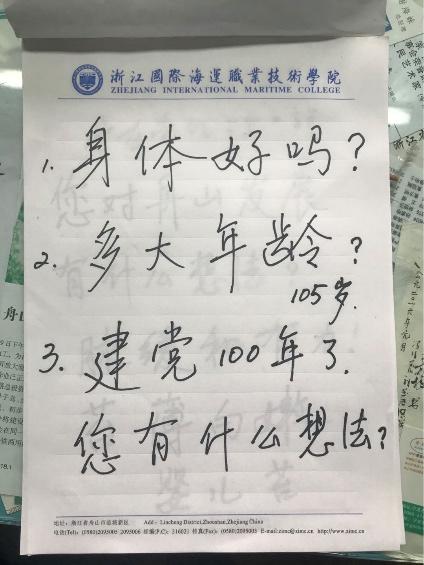 浙江國際海運職業技術學院
ZHEJIANG INTERNATIONAL MARITIME COLLEGE
1. 身体好吗?
2. 多大年龄?
105岁.
3. 建党100年了.
您有什么想法?
地址: 浙江省舟山市临城新区 Add: Lincheng District,Zhoushan,Zhejiang China
电话(Tel): (0580)2095005 2095006 邮编(P.C): 316021 传真(Fax): (0580)2095003 E-mail:zimc@zimc.cn http://www.zimc.cn